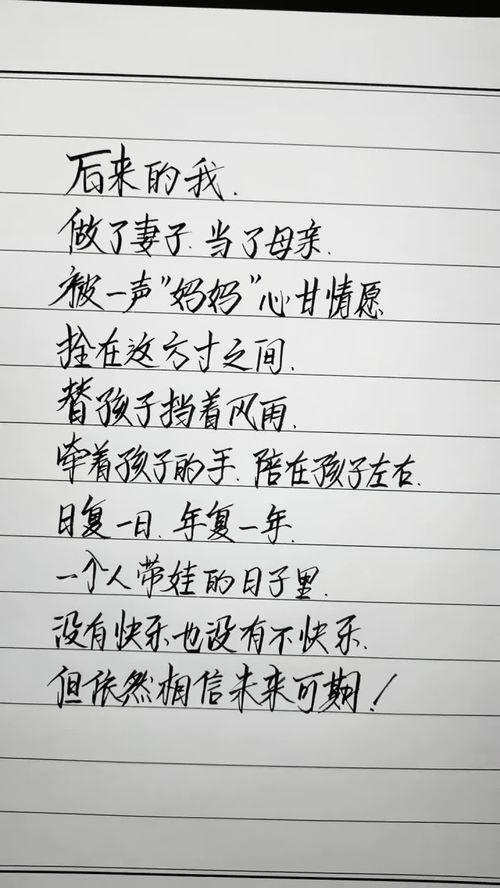 后来的我.
做了妻子.当了母亲.
被一声"妈妈"心甘情愿
拴在这方寸之间.
替孩子挡着风雨.
牵着孩子的手.陪在孩子左右.
日复一日.年复一年.
一个人带娃的日子里.
没有快乐也没有不快乐.
但依然相信未来可期!